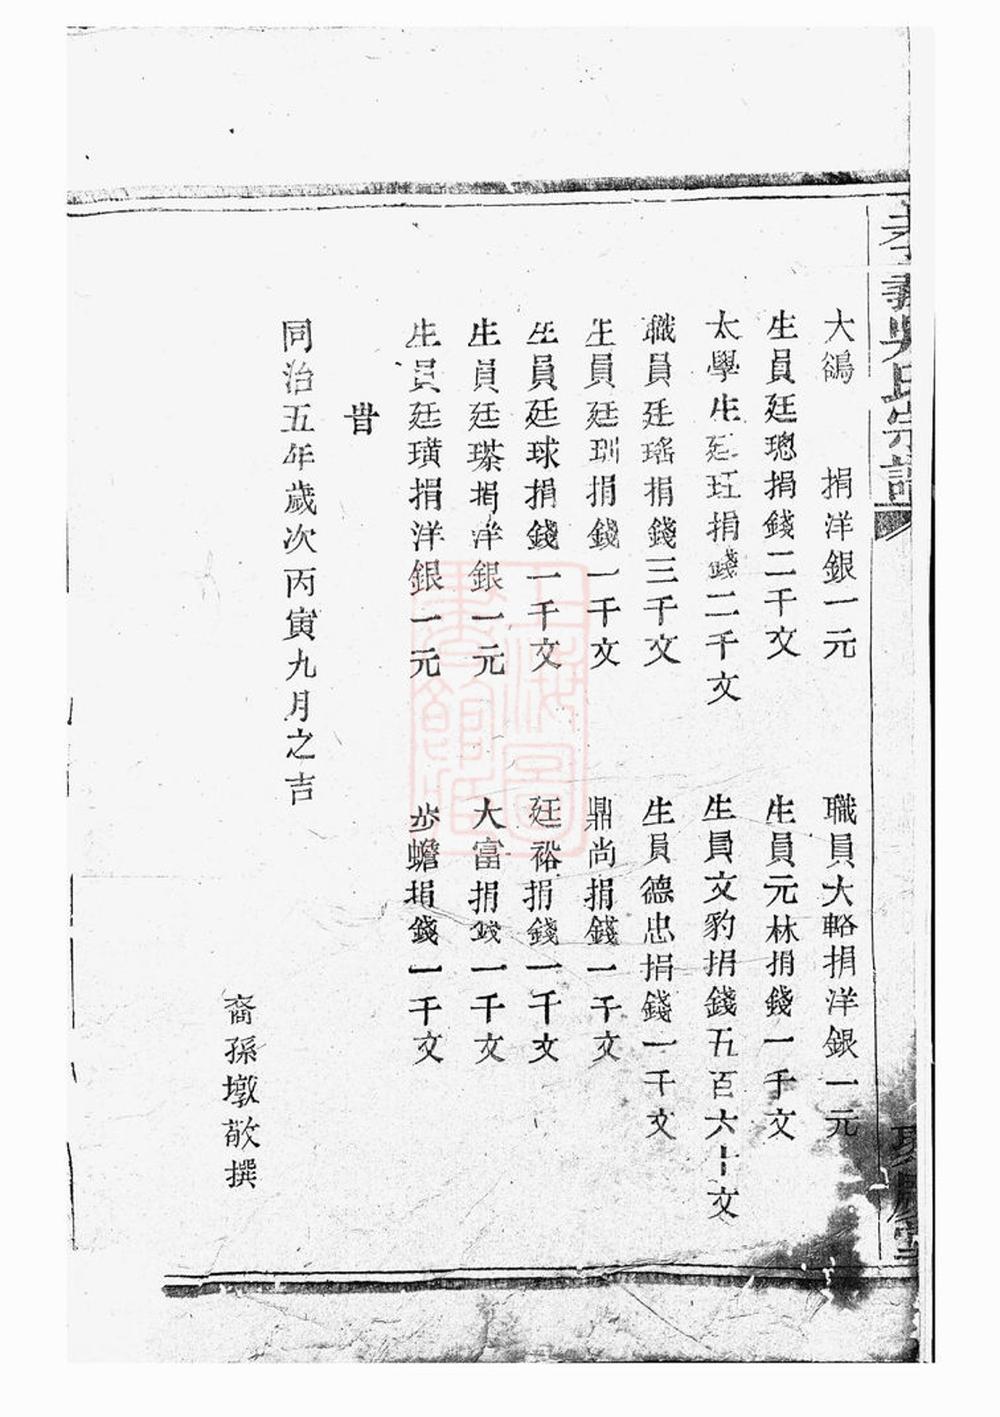 孝義吳氏宗譜
聚慶堂
大鵮 捐洋銀一元 職員大輅捐洋銀一元
生員廷璁捐錢二千文 生員元林捐錢一千文
太學生廷玨捐錢二千文 生員文豹捐錢五百六十文
職員廷瑤捐錢三千文 生員德忠捐錢一千文
生員廷玔捐錢一千文 鼎尚捐錢一千文
生員廷球捐錢一千文 廷裕捐錢一千文
生員廷瑹捐洋銀一元 大富捐錢一千文
生員廷璜捐洋銀一元 步蟾捐錢一千文
旹
同治五年歲次丙寅九月之吉
裔孫墩敬撰
上海圖書館藏